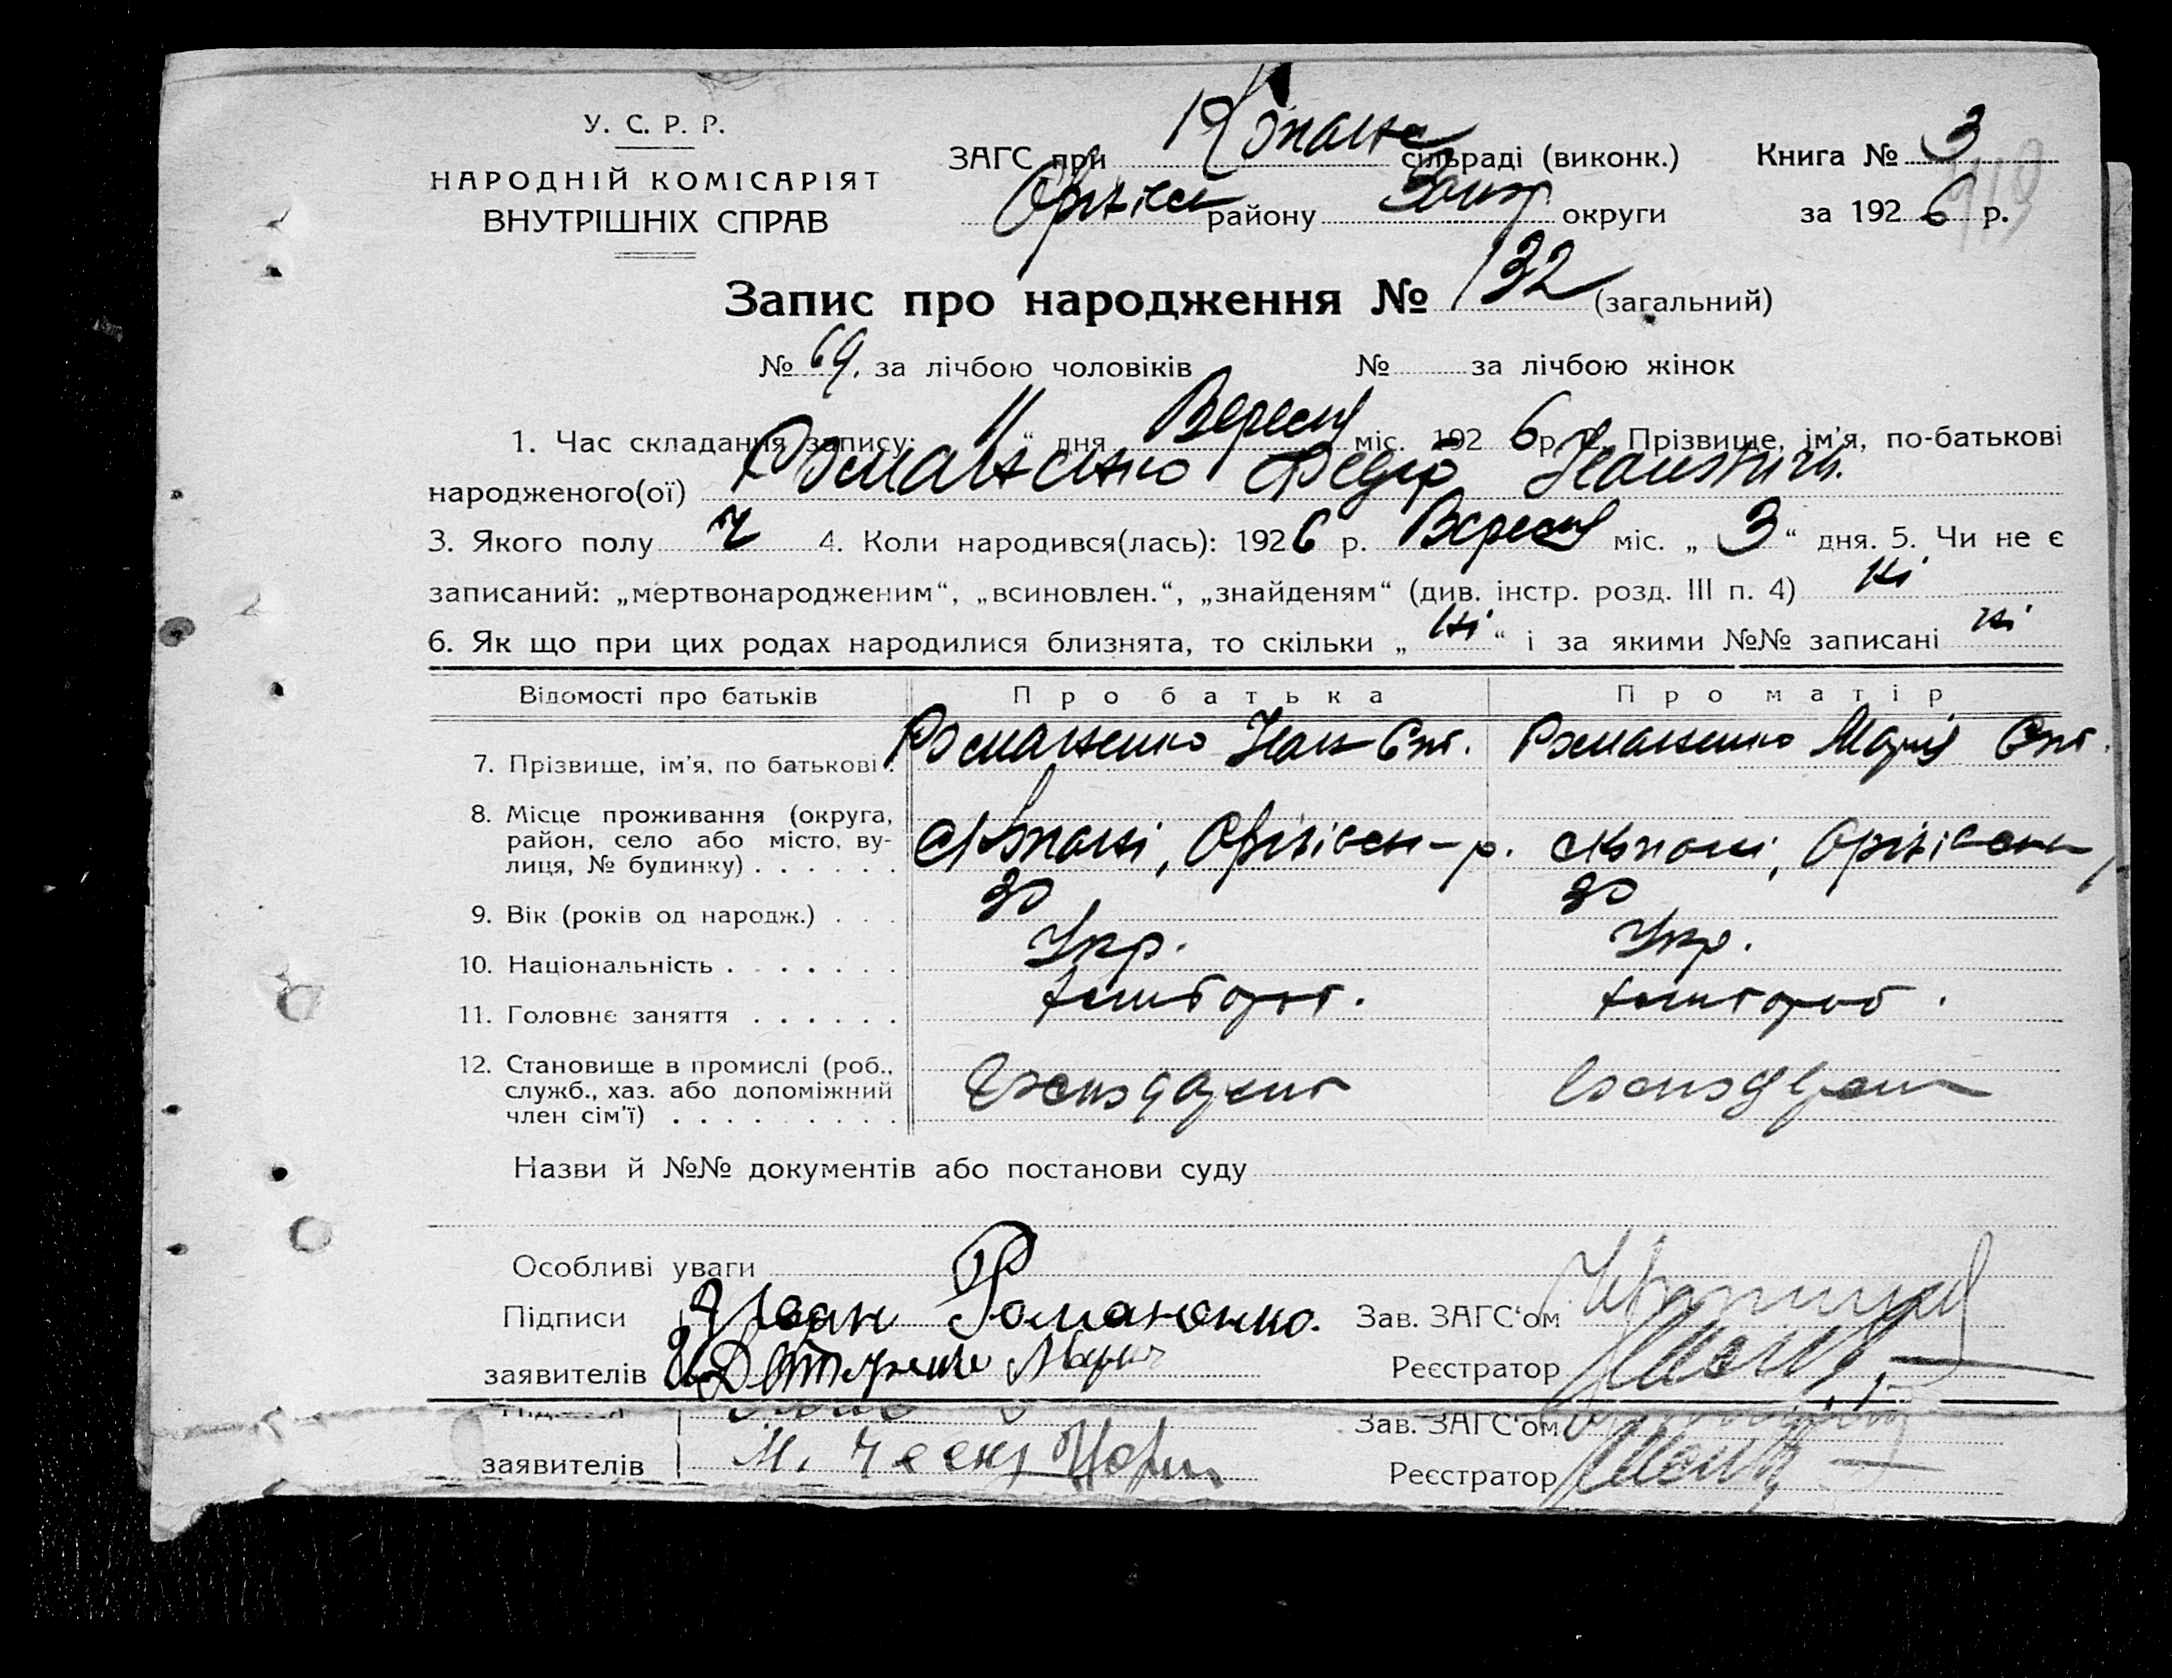 У. С. Р. Р.
НАРОДНІЙ КОМІСАРІЯТ
ВНУТРІШНІХ СПРАВ
ЗАГС при сільраді (виконк.) Книга № 3
району округи за 1926 р.
Запис про народження № 132 (загальний)
№ 69. за лічбою чоловіків № за лічбою жінок
1. Час складання запису: 11 “ дня Вересня міс. 1926 р. 2. Прізвище, ім’я, по-батькові
народженого(ої) Романенко Федір Іванович.
3. Якого полу ч 4. Коли народився(лась): 1926 р. Вересня міс. „ 3 “ дня. 5. Чи не є
записаний: „мертвонародженим“, „всиновлен.“, „знайденям“ (див. інстр. розд. III п. 4) ні
6. Як що при цих родах народилися близнята, то скільки „ ні “ і за якими №№ записані ні
Відомості про батьків Про батька Про матір
7. Прізвище, ім’я, по батькові. Романенко Іван Романенко Марія
8. Місце проживання (округа,
район, село або місто, ву-
лиця, № будинку) . . . . . . с Копані, р. с Копані,
9. Вік (років од народж.) . . . 30 30
10. Національність . . . . . . . Укр. Укр.
11. Головнє заняття . . . . . . хлібороб. хлібороб.
12. Становище в промислі (роб.,
служб., хаз. або допоміжний
член сім’ї) . . . . . . . . .
Назви й №№ документів або постанови суду
Особливі уваги
Підписи Іван Романенко. Зав. ЗАГС‘ом
заявителів Реєстратор
Зав. ЗАГС‘ом
заявителів Реєстратор